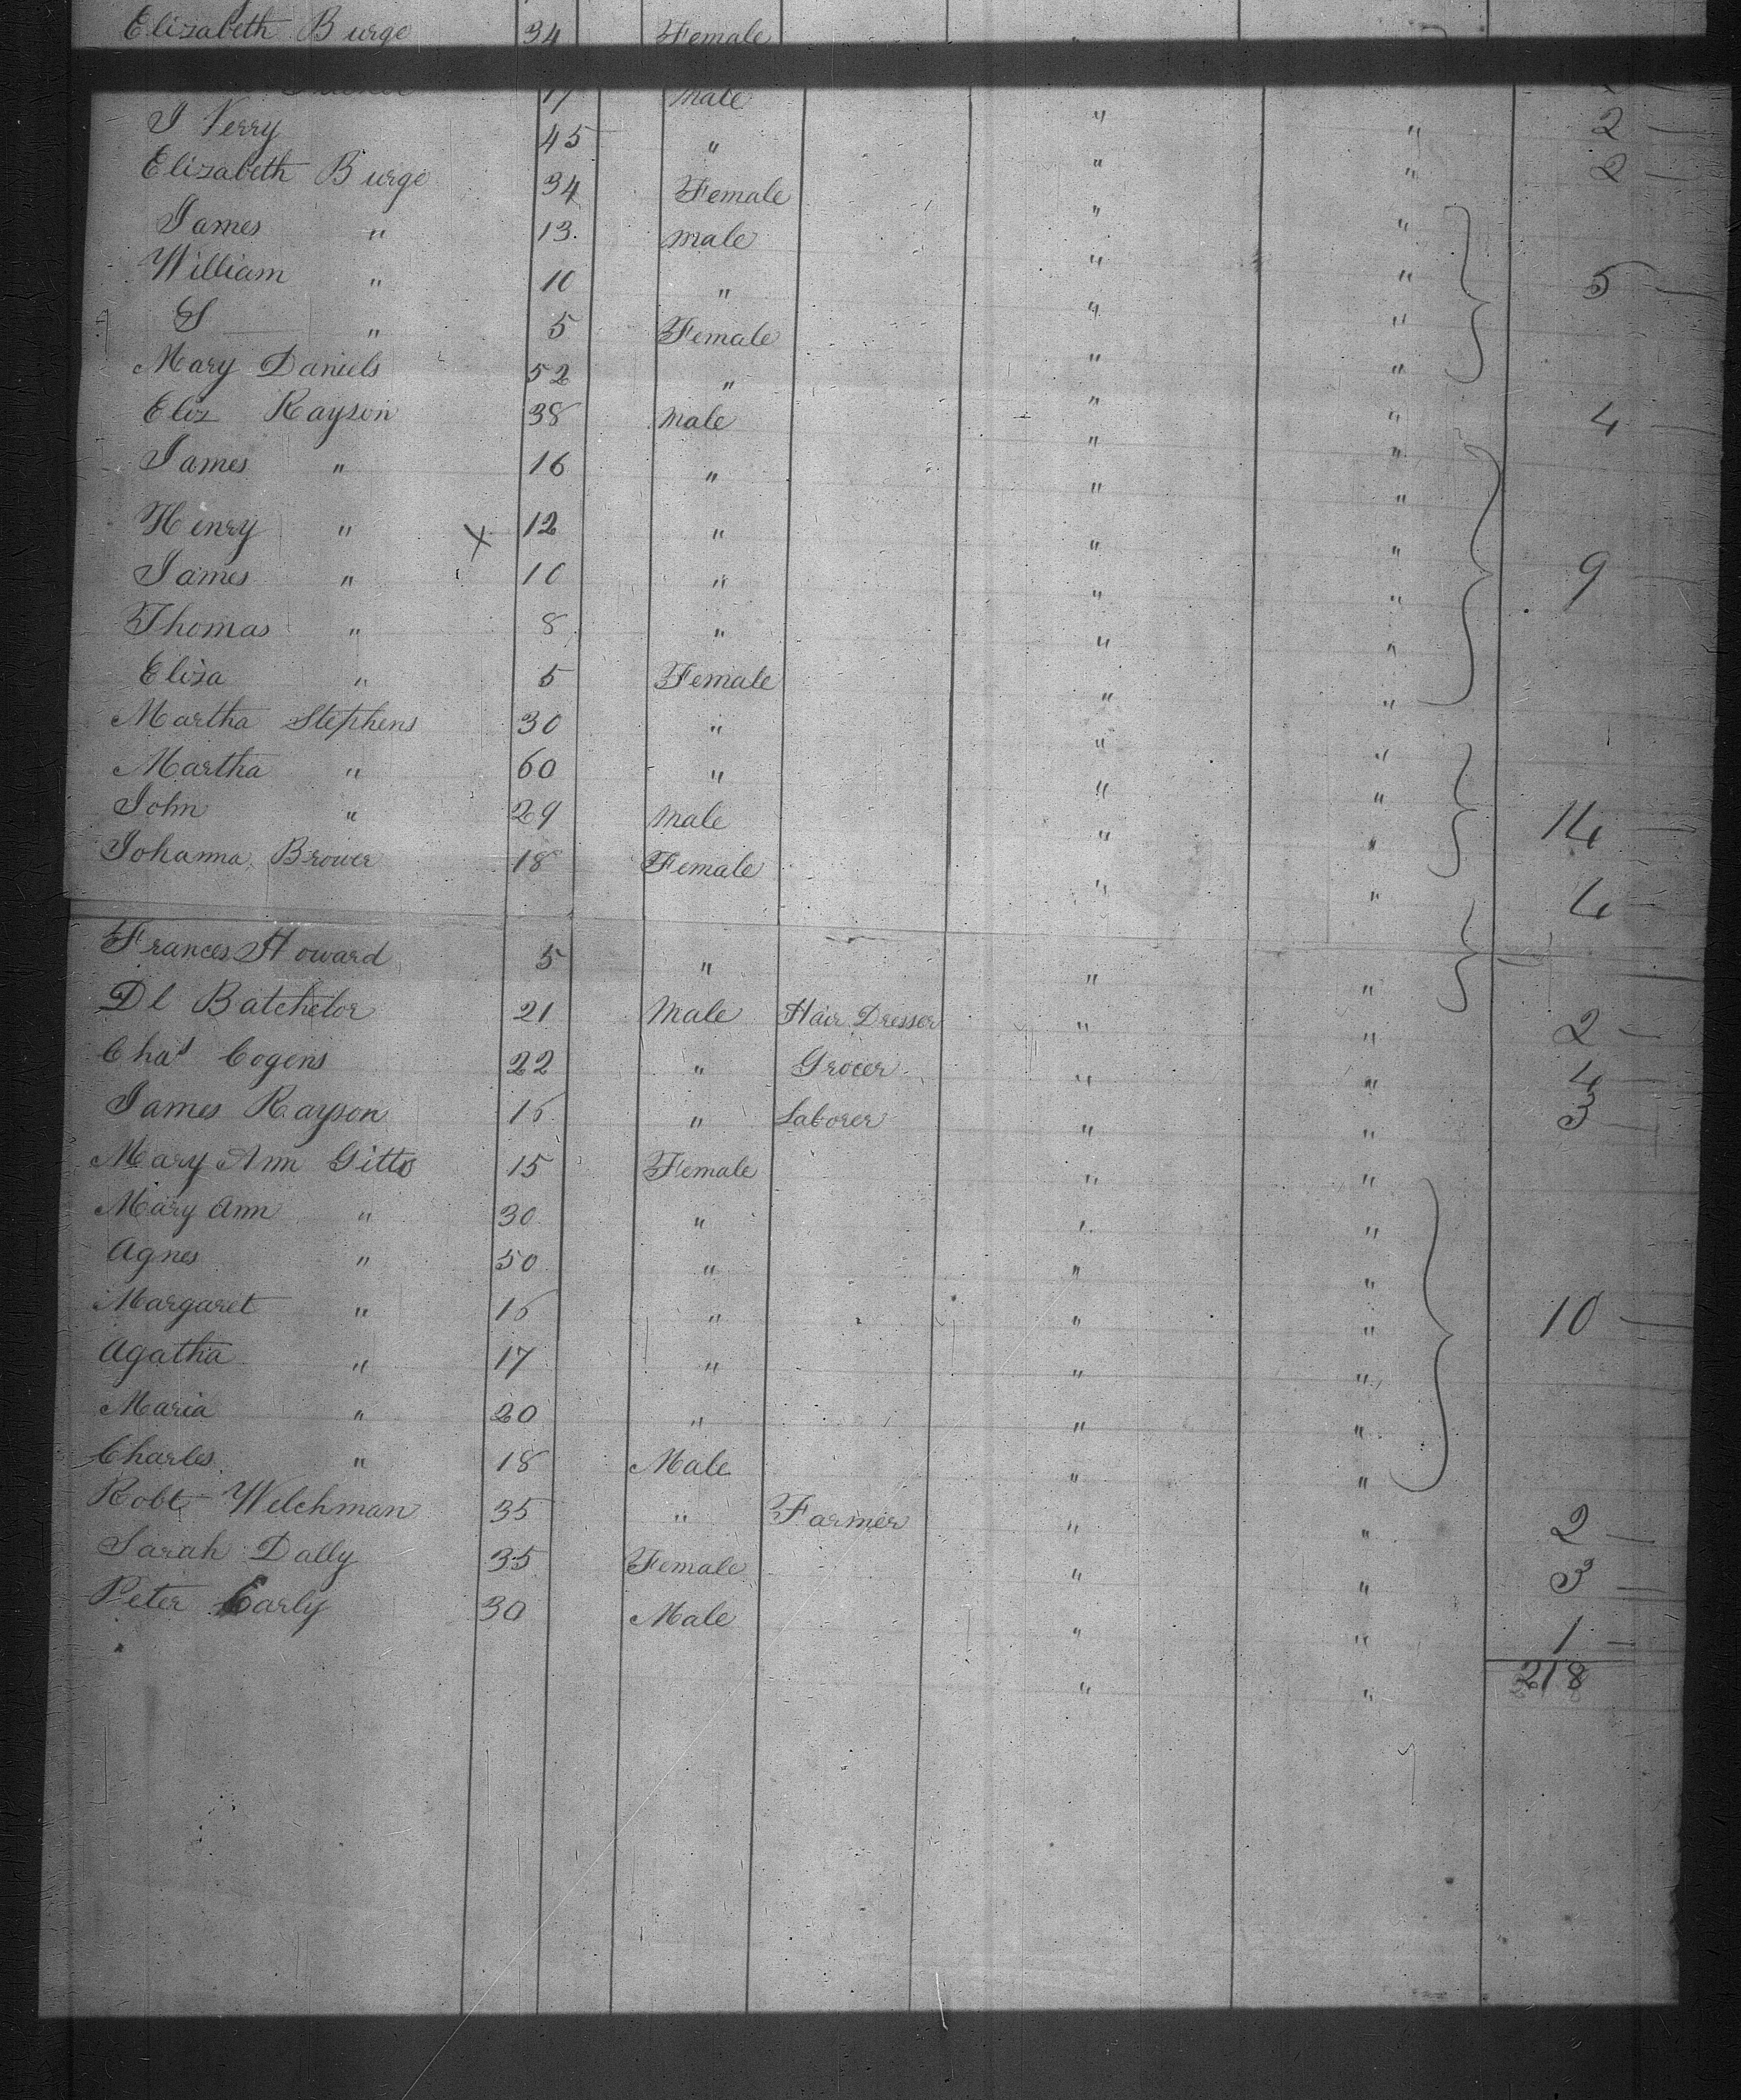 Elizabeth Burge 34 Female
17 Male "
J Verry 45 " " " 2
Elizabeth Burge 34 Female " " 2
James " 13 male " "
William " 10 " " " 5
S — " 5 Female " "
Mary Daniels 52 " " "
Eliz Rayson 38 male " " 4
James " 16 " " "
Henry " x 12 " " "
James " 10 " " " 9
Thomas " 8 " " "
Eliza " 5 Female " "
Martha Stephens 30 " " "
Martha " 60 " " "
John " 29 male " " 14
Johanna Brower 18 Female " " 4
Frances Howard 5 " " "
Dl Batchelor 21 Male Hair Dresser " " 2
Chas Cogens 22 " Grocer " " 4
James Rayson 15 " Laborer " " 3
Mary Ann Gitto 15 Female " "
Mary Ann " 30 " " "
Agnes " 50 " " "
Margaret " 15 " " " 10
Agatha " 17 " " "
Maria " 20 " " "
Charles " 18 Male " "
Robt Welchman 35 " Farmer " " 2
Sarah Dally 35 Female " " 3
Peter Carly 30 Male " " 1
" " 218